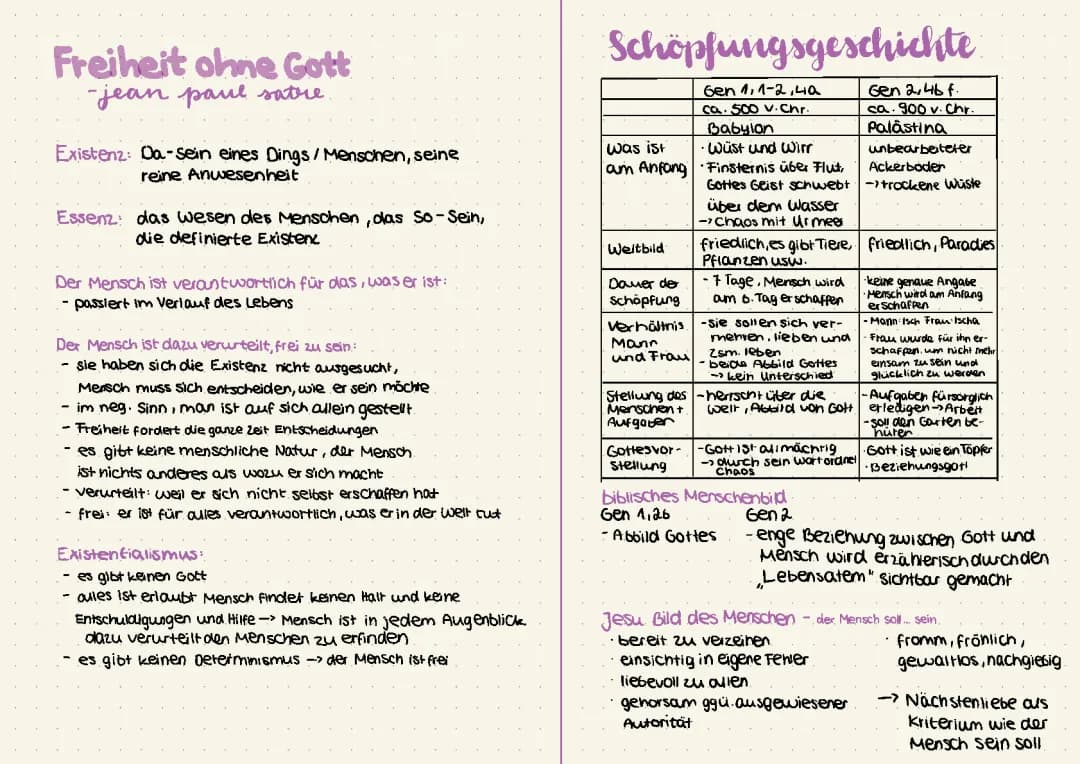 Freiheit ohne Gott
-jean paul satre
Existenz: Da-Sein eines Dings / Menschen, seine
reine Anwesenheit
Essenz: das Wesen des Menschen, das So-Sein,
die definierte Existenz
Der Mensch ist verantwortlich für das, was er ist:
- passiert im Verlauf des Lebens
Der Mensch ist dazu verurteilt, frei zu sein:
- sie haben sich die Existenz nicht ausgesucht,
Mensch muss sich entscheiden, wie er sein möchte
- im neg. Sinn, man ist auf sich allein gestellt
- Freiheit fordert die ganze Zeit Entscheidungen
- es gibt keine menschliche Natur, der Mensch
ist nichts anderes als wozu er sich macht
- verurteilt: weil er sich nicht selbst erschaffen hat
- frei: er ist für alles verantwortlich, was er in der Welt tut
Existentialismus:
- es gibt keinen Gott
- alles ist erlaubt Mensch findet keinen Halt und keine
Entschuldigungen und Hilfe -> Mensch ist in jedem Augenblick
dazu verurteilt den Menschen zu erfinden
- es gibt keinen Determinismus -> der Mensch ist frei
Schöpfungsgeschichte
Gen 1,1-2,4a
Gen 2,4b f.
ca. 500 v. Chr.
ca. 900 v. Chr.
Babylon
Palästina
Was ist
am Anfang
· Wüst und Wirr
· Finsternis über Flut,
Gottes Geist schwebt
über dem Wasser
-> Chaos mit Urmeer
unbearbeiteter
Ackerboder
-> trockene Wüste
Weltbild
friedlich, es gibt Tiere,
Pflanzen usw.
friedlich, Paradies
Dauer der
Schöpfung
- 7 Tage, Mensch wird
am 6. Tag erschaffen
· keine genaue Angabe
· Mensch wird am Anfang
erschaffen
Verhältnis
Mann
und Frau
- sie sollen sich ver-
mehren, lieben und
zsm. leben
- beide Abbild Gottes
-> kein Unterschied
- Mann: Isch Frau: Ischa
· Frau wurde für ihn er-
schaffen, um nicht mehr
einsam zu sein und
glücklich zu werden
Stellung des
Menschen +
Aufgaben
- herrscht über die
Welt, Abbild von Gott
- Aufgaben fürsorglich
erledigen -> Arbeit
- soll den Garten be-
hüten
Gottesvor-
stellung
- Gott ist allmächtig
-> durch sein Wort ordnet
Chaos
· Gott ist wie ein Töpfer
· Beziehungsgott
biblisches Menschenbild
Gen 1,26
- Abbild Gottes
Gen 2
- enge Beziehung zwischen Gott und
Mensch wird erzählerisch durch den
„Lebensatem" sichtbar gemacht
Jesu Bild des Menschen - der Mensch soll... sein
· bereit zu verzeihen
· einsichtig in eigene Fehler
· liebevoll zu allen
· gehorsam ggü. ausgewiesener
Autorität
· fromm, fröhlich,
gewaltlos, nachgiebig
-> Nächstenliebe als
Kriterium wie der
Mensch sein soll